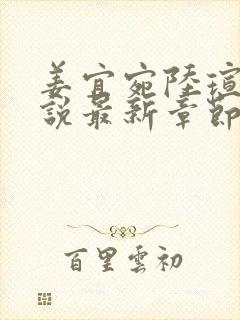 姜宜宛陸瑄
說最新章節
百里雲初